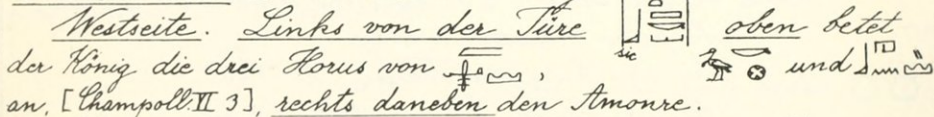 Westseite. Links von der Türe sic oben betet
der König die drei Horus von , und
an, [Champoll. VI 3], rechts daneben den Amonre.